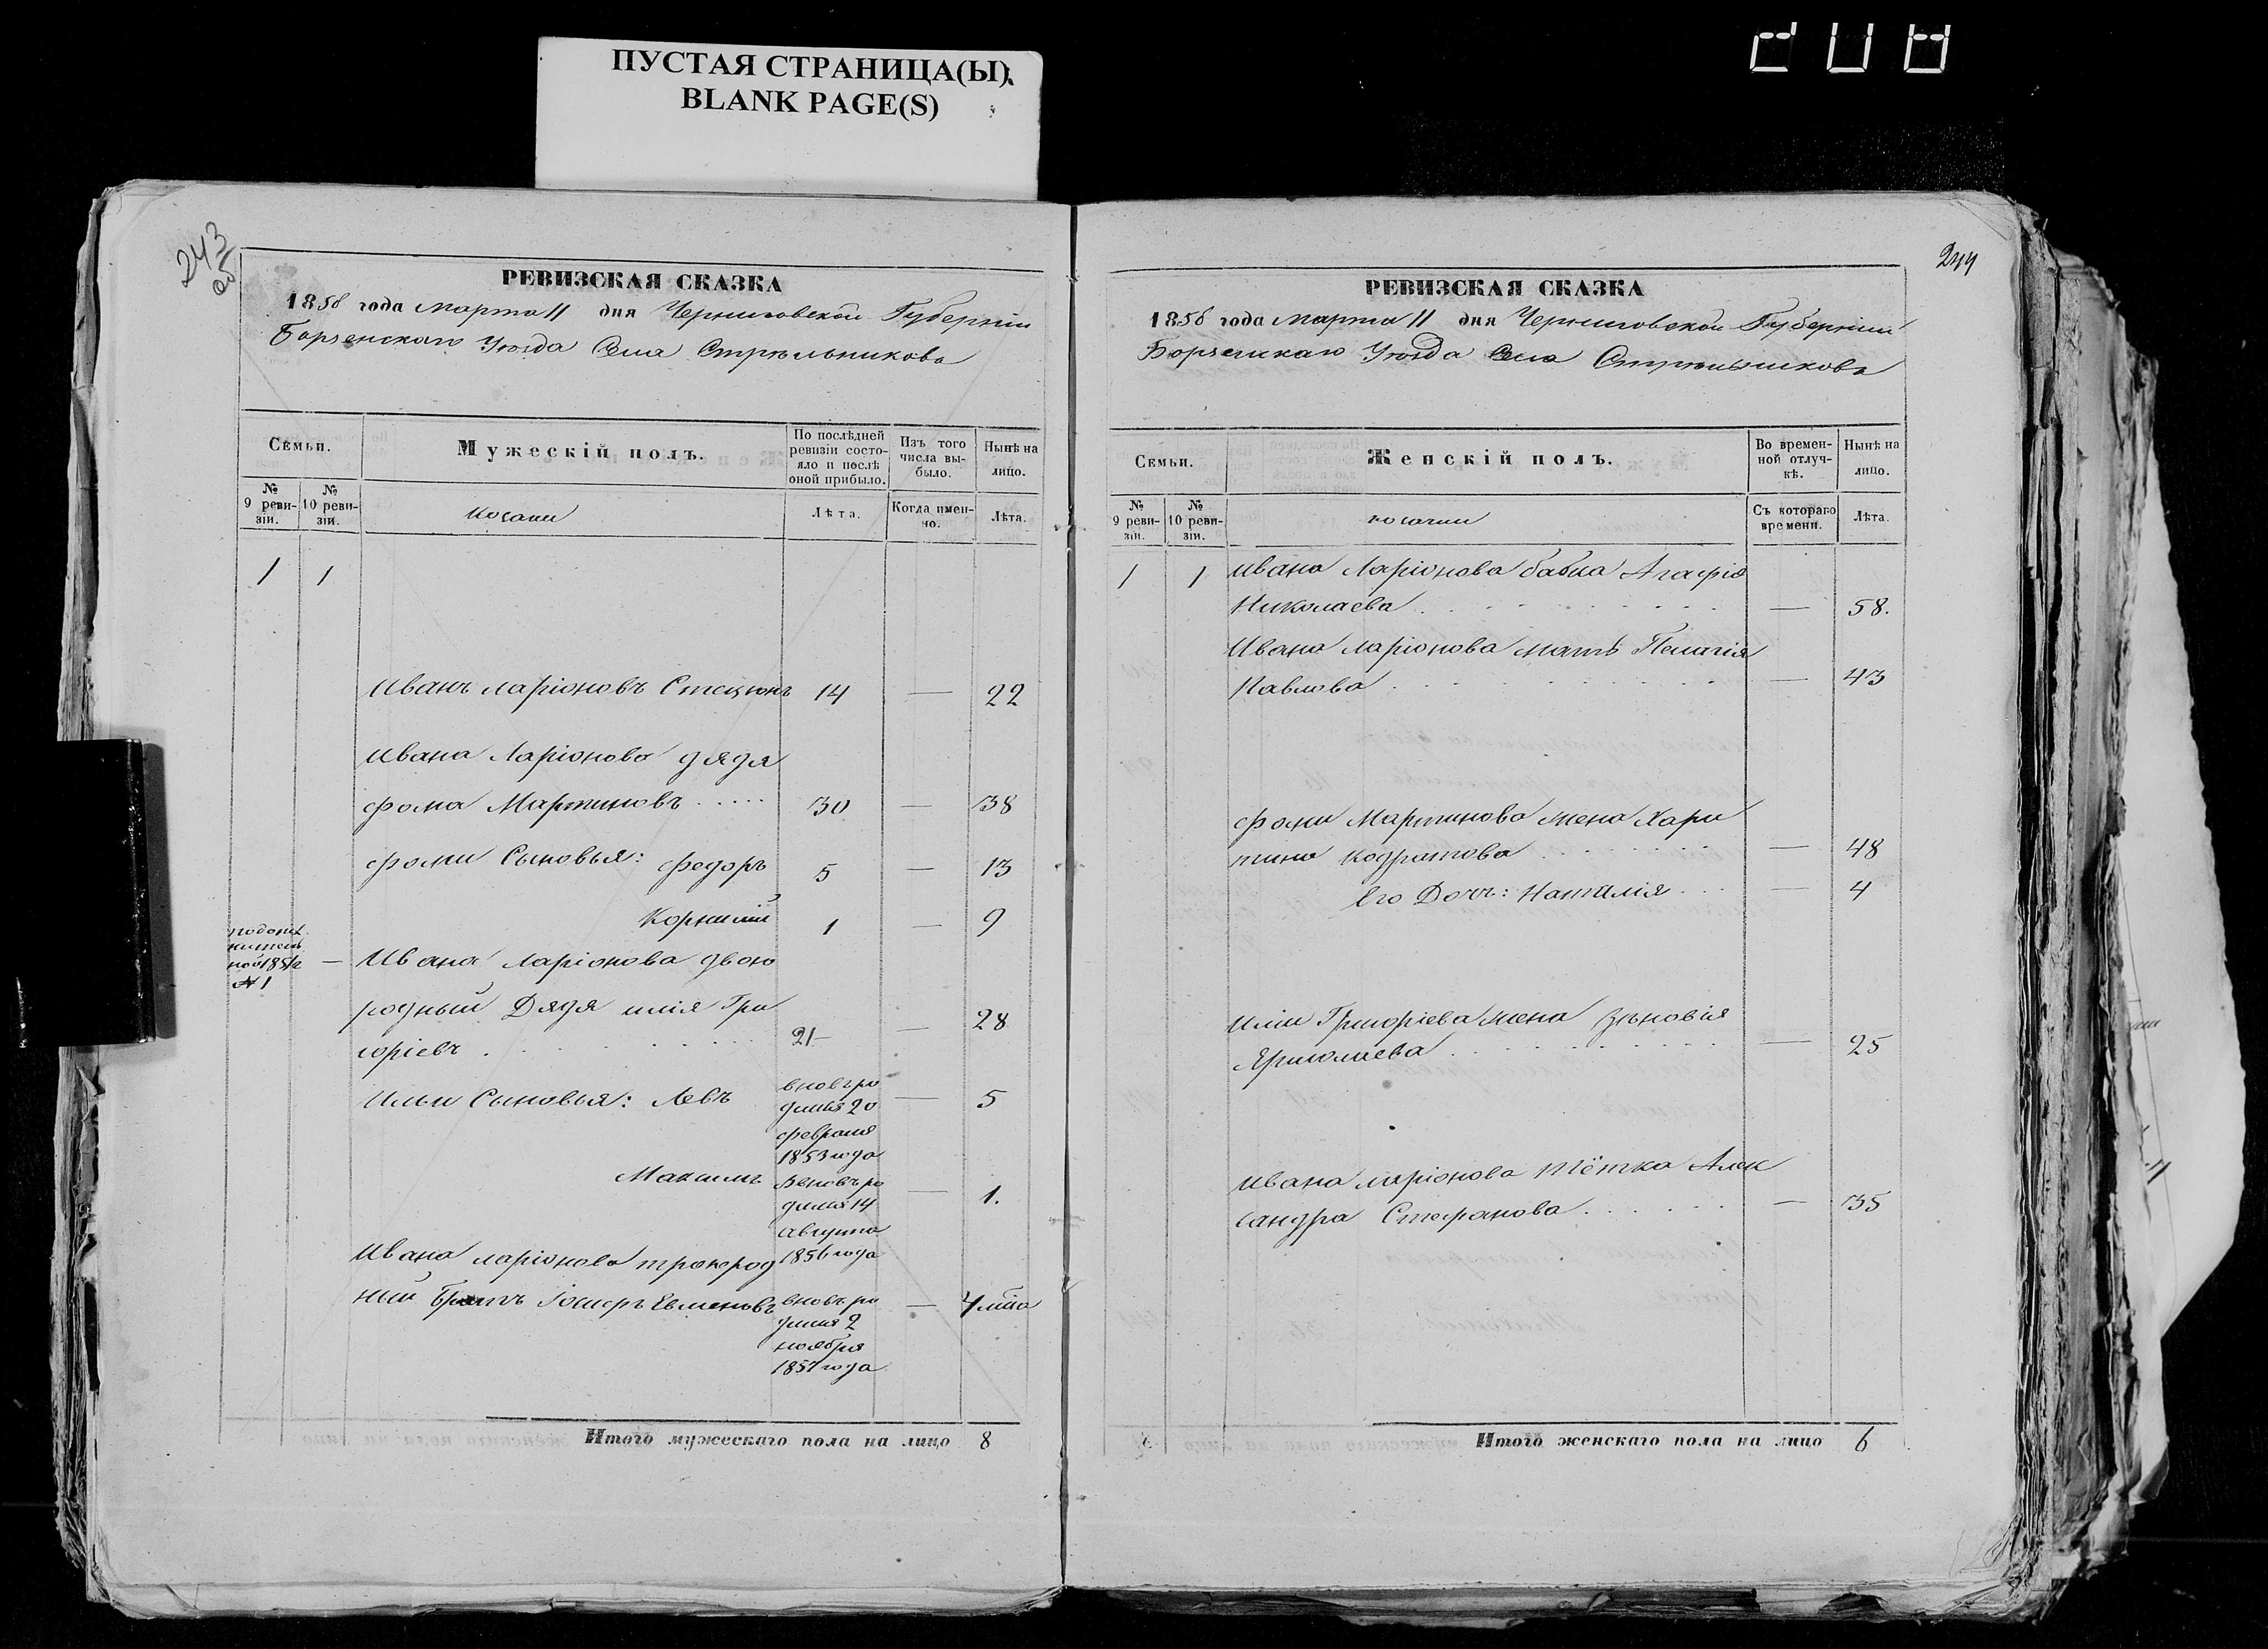 ПУСТАЯ СТРАНИЦА(Ы).
BLANK PAGE(S)
243
об
РЕВИЗСКАЯ СКАЗКА
1858 года Марта 11 дня Черниговской Губернiи
Борзенского Уѣзда Села Стрѣльникова
Семьи.
Мужескій полъ.
По послѣдней ревизіи состояло и послѣ оной прибыло.
Изъ того числа выбыло.
Нынѣ на лицо.
№ 9 ревизіи.
№ 10 ревизіи.
козаки
Лѣта.
Когда именно.
Лѣта.
1 1
Иванъ Ларіоновъ Стецюнъ 14 — 22
Ивана Ларіонова дядя
Фома Мартиновъ . . . . . 30 — 38
Фомы Сыновья: Федоръ 5 — 13
Корнилій 1 — 9
по
нитель
ной 185
№ 1
— Ивана Ларіонова двою
родный Дядя Илія Гри
горіевъ . . . . . 21 — 28
Ильи Сыновья: Левъ вновь ро — 5
дился 20
февраля
1853 года
Максимъ вновь ро — 1.
дился 14
августа
1856 года
Ивана Ларіонова троюрод
ный Братъ Іосифъ Евменовъ вновь ро — 4 мѣсяца
дился 2
ноября
1857 года
Итого мужескаго пола на лицо 8
244
РЕВИЗСКАЯ СКАЗКА
1858 года Марта 11 дня Черниговской Губерніи
Борзенскаго Уѣзда Села Стрѣльникова
Семьи.
Женскій полъ.
Во временной отлучкѣ.
Нынѣ на лицо.
№ 9 ревизіи.
№ 10 ревизіи.
козачки
Съ котораго времени.
Лѣта.
1 1 Ивана Ларіонова бабка Агафія
Николаева . . . . . — 58.
Ивана Ларіонова мать Пелагія
Павлова . . . . . — 43
Фомы Мартинова жена Хари
тина Кодратова . . . . . — 48
Его Дочь: Наталія . . . — 4
Иліи Григоріева жена Зѣновія
Ярмолаева . . . . . — 25
Ивана Ларіонова тётка Алек
сандра Стефанова . . . . . — 35
Итого женскаго пола на лицо 6